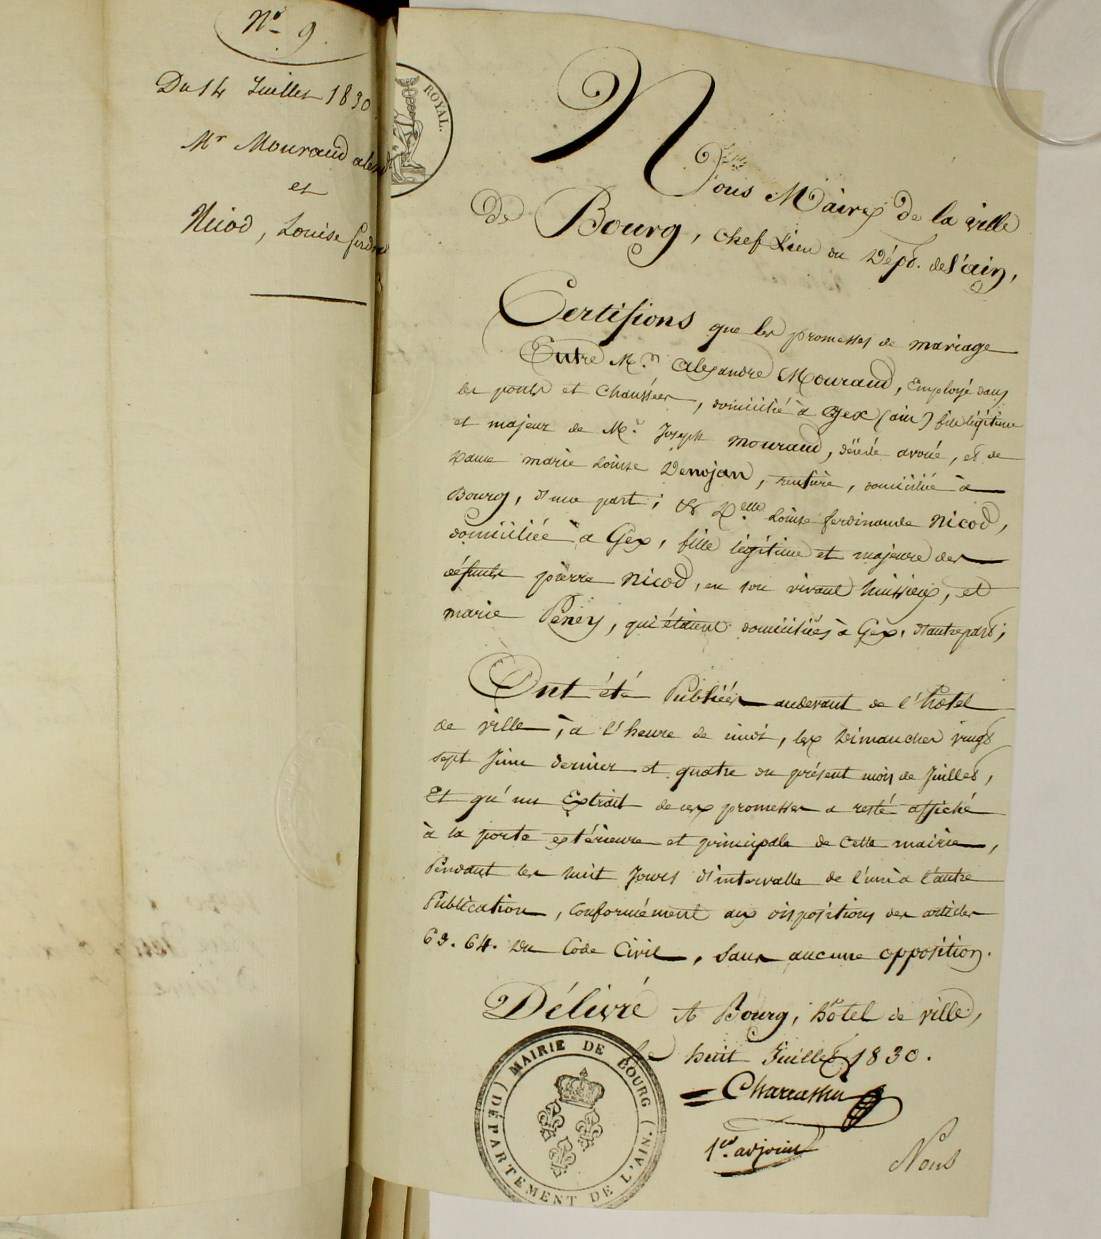 N.o 9.
Du 14 Juillet 1830
Mr Mouraud alexd.
et
Nicod, Louise ferdnde
ROYAL.
Nous Maire de la ville
De Bourg, chef lieu du Dépt. de l'ain,
Certifions que les promesses de mariage
Entre Mr. Alexandre Mouraud, Employé dans
les ponts et chaussées, domicilié à Gex (ain) fils légitime
et majeur de Mr. Joseph Mouraud, décédé avoué, et de
Dame marie Louise Denojan, rentière, domiciliée à
Bourg, d'une part; & Delle Louise ferdinande Nicod,
domiciliée à Gex, fille légitime et majeure des
défunts pierre Nicod, en son vivant huissier, et
marie Peney, qui étaient domiciliés à Gex, d'autre part;
Ont été Publiées audevant de l'hôtel
de ville, à l'heure de midi, les Dimanches vingt
sept Juin dernier et quatre du présent mois de Juillet,
Et qu'un Extrait de ces promesses a resté affiché
à la porte extérieure et principale de cette mairie,
Pendant les huit Jours d'intervalle de l'une à l'autre
Publication, Conformément aux dispositions des articles
63. 64. Du Code Civil, sans aucune opposition.
Délivré A Bourg, hôtel de ville,
le huit Juillet 1830.
Charrassin
1er. adjoint
Nous
MAIRIE DE BOURG
(DÉPARTEMENT DE L'AIN.)